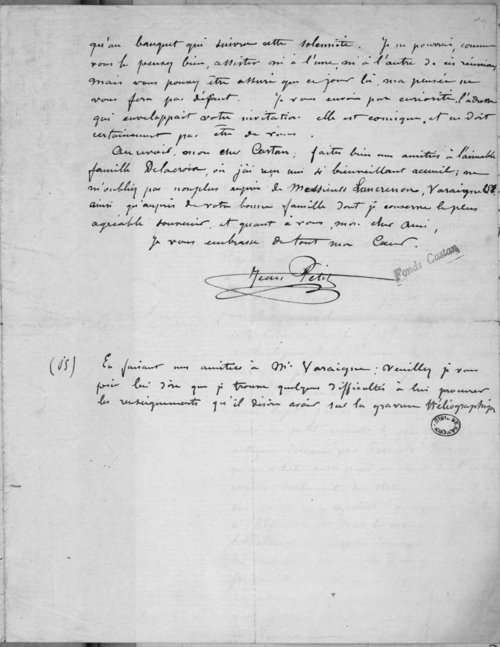 qu'au banquet qui suivra cette solennité. Je ne pourrai, comme
vous le pensez bien, assister ni à l'une, ni à l'autre de ces réunions
mais vous pouvez être assuré que ce jour là, ma pensée ne
vous fera pas défaut. Je vous envoie par curiosité l'adresse
qui enveloppait votre invitation. elle est comique, et ne doit
certainement pas être de vous.
Au revoir, mon cher Castan; faites bien mes amitiés à l'aimable
famille Delacroix, où j'ai reçu un si bienveillant accueil; ne
m'oubliez pas non plus auprès de Messieurs Lancrenon, Varaigne
ainsi qu'auprès de votre bonne famille dont je conserve le plus
agréable souvenir, et quant à vous, mon cher ami,
Je vous embrasse de tout mon Coeur.
Jean Petit
Fonds Castan
En faisant mes amitiés à Mr Varaigne; veuillez je vous
prie lui dire que je trouve quelques difficultés à lui procurer
les renseignements qu'il désire avoir sur la gravure Héliographique